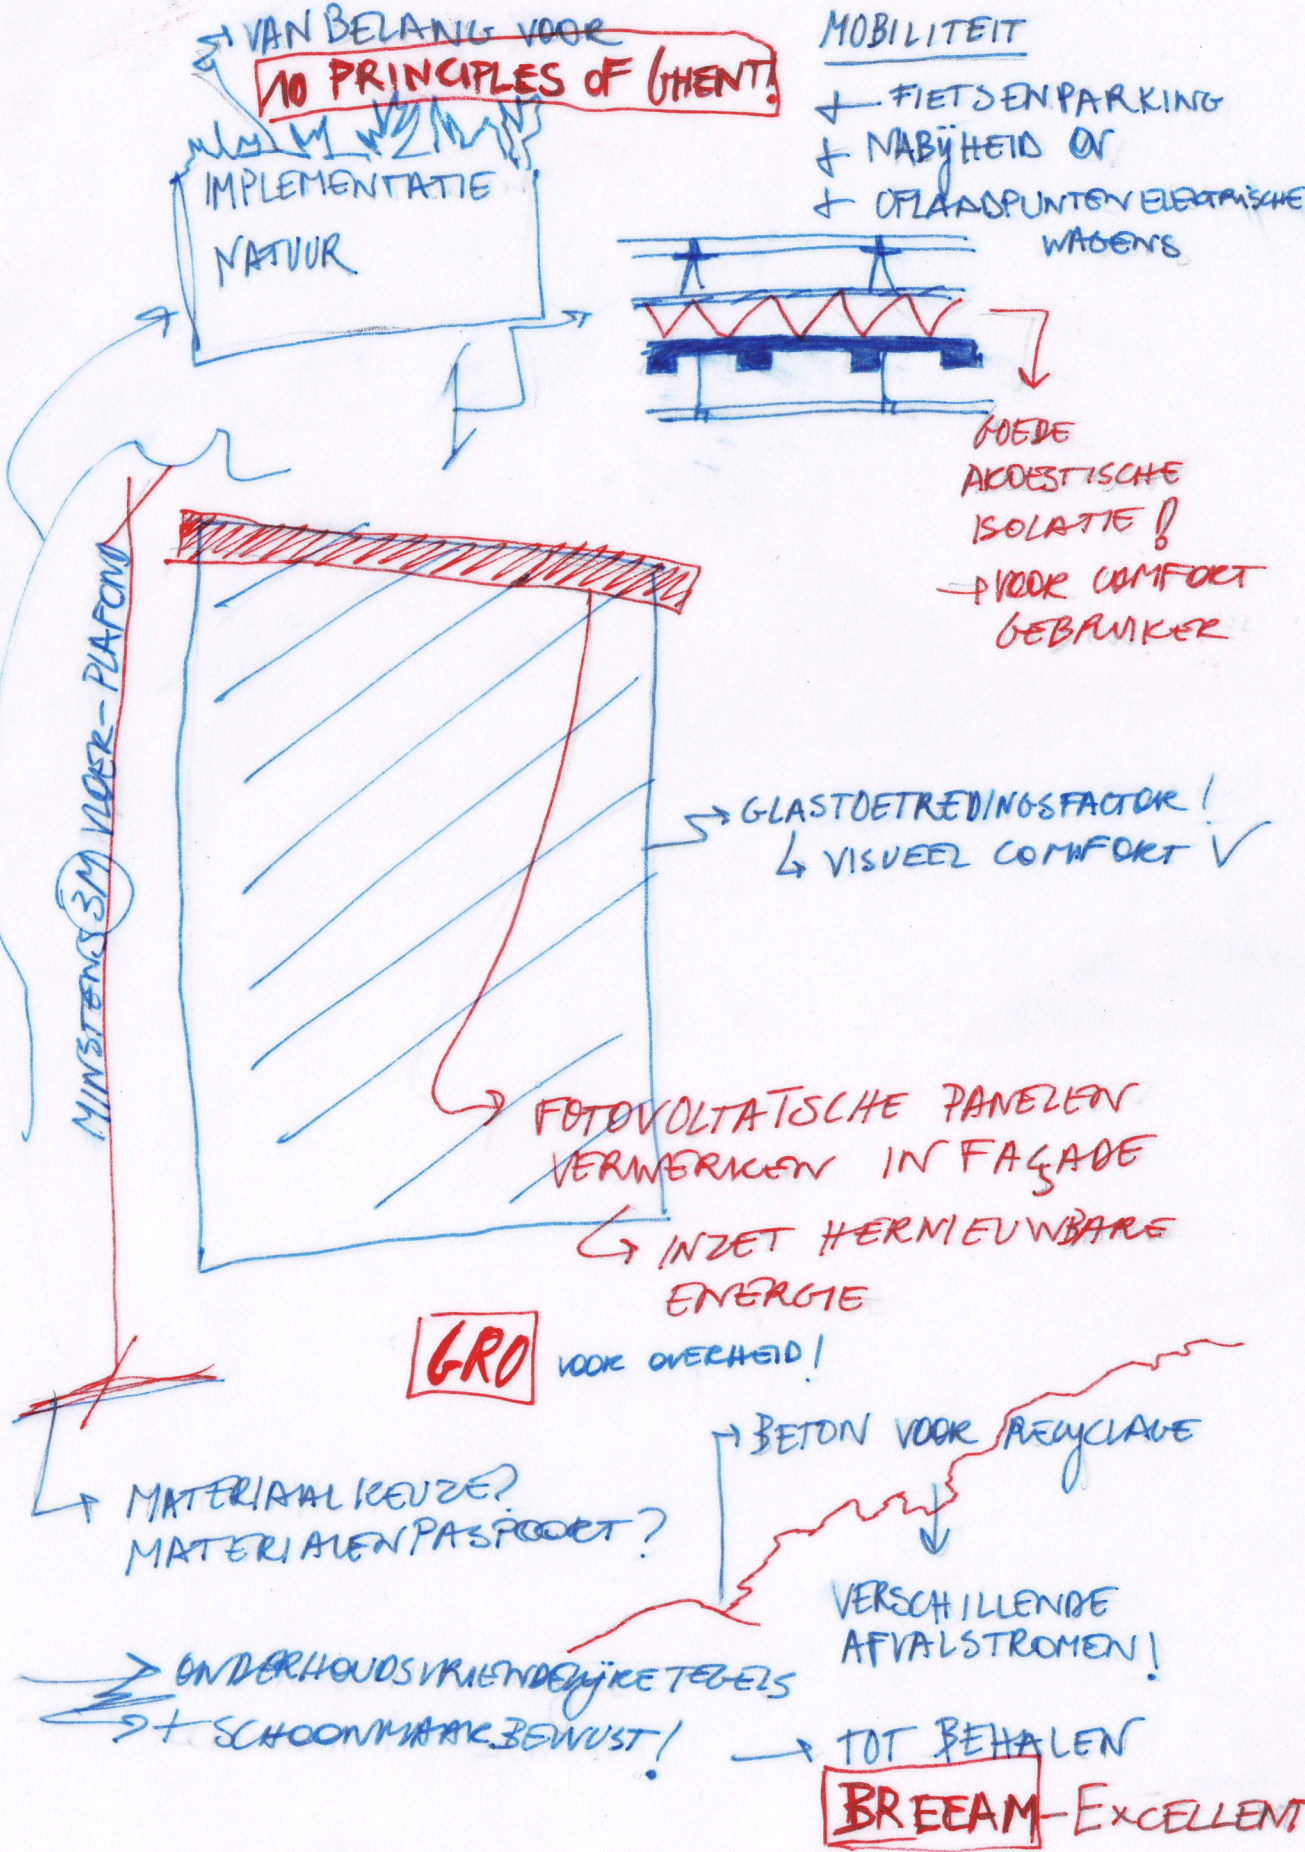 VAN BELANG VOOR
10 PRINCIPLES OF GHENT!
IMPLEMENTATIE
NATUUR
MOBILITEIT
+ FIETSENPARKING
+ NABIJHEID OV
+ OPLAADPUNTEN ELECTRISCHE
WAGENS
GOEDE
AKOESTISCHE
ISOLATIE!
→ VOOR COMFORT
GEBRUIKER
MINSTENS 3M VLOER-PLAFOND
→ GLASTOETREDINGSFACTOR!
↳ VISUEEL COMFORT ✓
FOTOVOLTAISCHE PANELEN
VERWERKEN IN FAÇADE
↳ INZET HERNIEUWBARE
ENERGIE
GRO VOOR OVERHEID!
→ BETON VOOR RECYCLAGE
MATERIAALKEUZE?
MATERIALENPASPOORT?
VERSCHILLENDE
AFVALSTROMEN!
ONDERHOUDSVRIENDELIJKE TEGELS
+ SCHOONMAAKBEWUST!
→ TOT BEHALEN
BREEAM-EXCELLENT